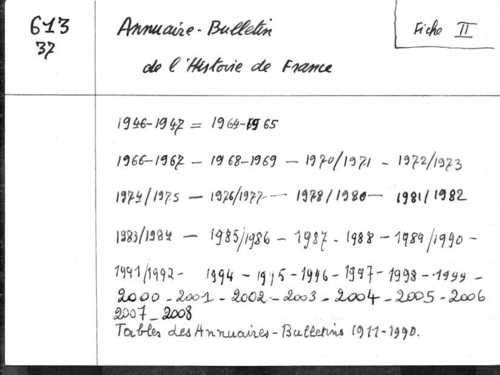 613
37
Annuaire-Bulletin
de l'Histoire de France
Fiche II
1946-1947 = 1964-1965
1966-1967 - 1968-1969 - 1970/1971 - 1972/1973
1974/1975 - 1976/1977 - 1978/1980 - 1981/1982
1983/1984 - 1985/1986 - 1987 - 1988 - 1989/1990 -
1991/1992 - 1994 - 1995 - 1996 - 1997 - 1998 - 1999 -
2000 - 2001 - 2002 - 2003 - 2004 - 2005 - 2006
2007 - 2008
Tables des Annuaires-Bulletins 1911-1990.